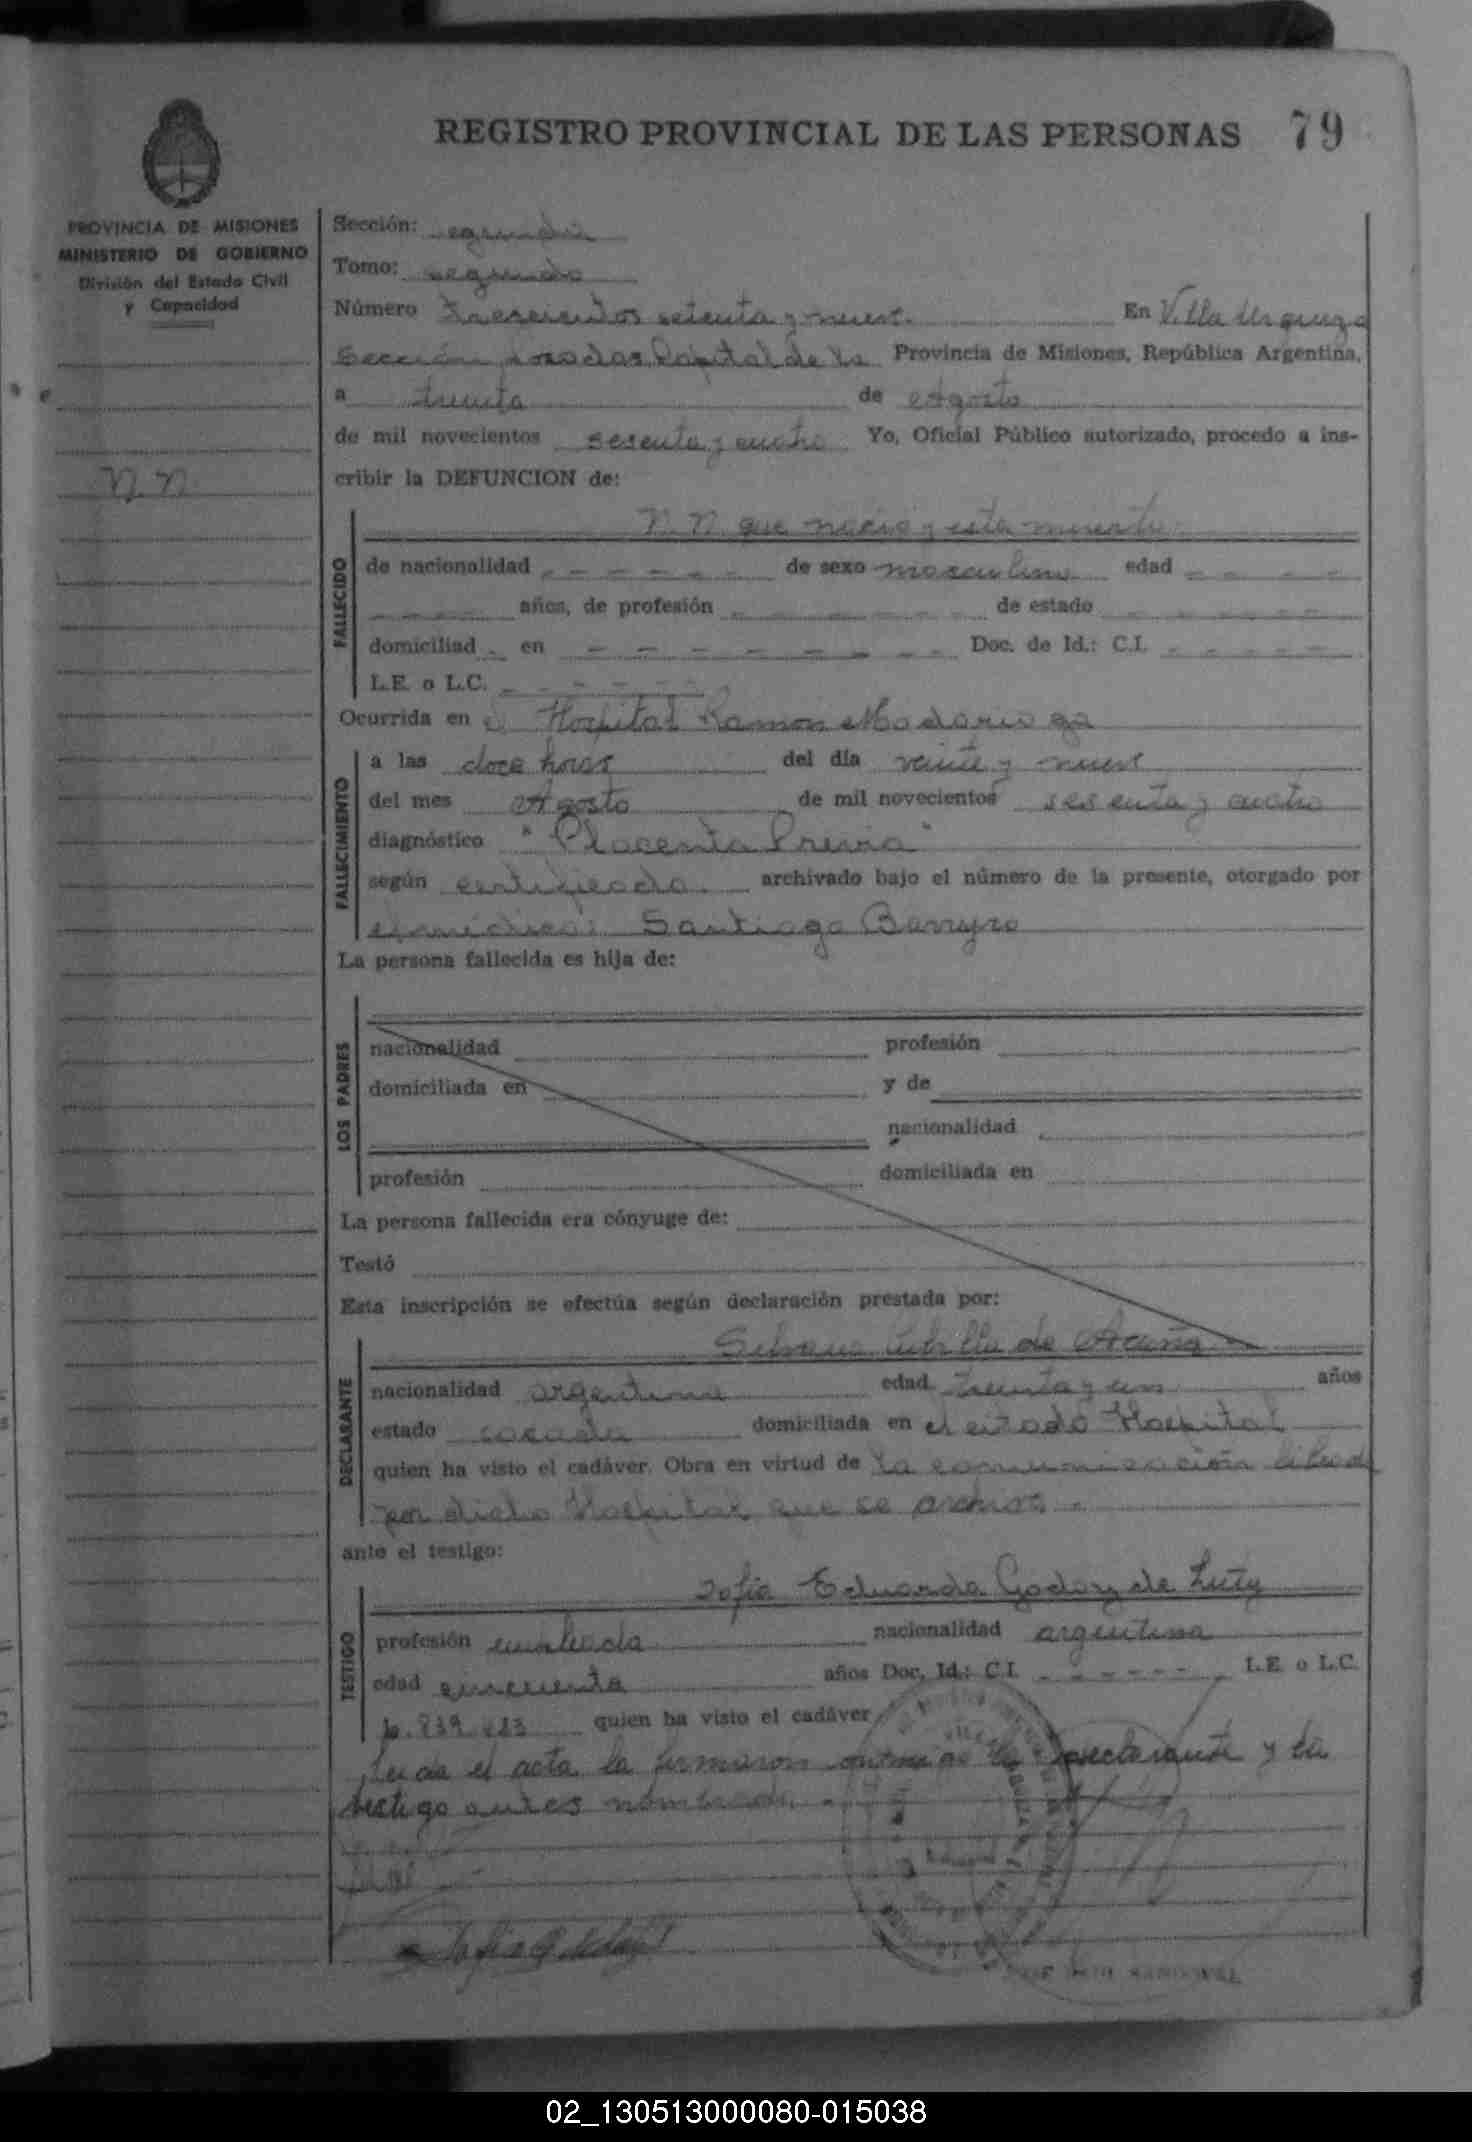 REGISTRO PROVINCIAL DE LAS PERSONAS 79
PROVINCIA DE MISIONES
MINISTERIO DE GOBIERNO
División del Estado Civil
y Capacidad
N. N.
Sección: segunda
Tomo: segundo
Número trescientos setenta y nueve. En Villa Urquiza
Sección Posadas Capital de la Provincia de Misiones, República Argentina,
a treinta de Agosto
de mil novecientos sesenta y cuatro Yo, Oficial Público autorizado, procedo a ins-
cribir la DEFUNCION de:
N. N. que nacio y esta muerto
FALLECIDO
de nacionalidad - - - - - - de sexo masculino edad - - - -
- - - - años, de profesión - - - - - - de estado - - - - - -
domiciliad - en - - - - - - - - - Doc. de Id.: C.I. - - - - -
L.E. o L.C. - - - - - -
Ocurrida en el Hospital Ramon Madariaga
FALLECIMIENTO
a las doce horas del día veinte y nueve
del mes Agosto de mil novecientos sesenta y cuatro
diagnóstico "Placenta Previa"
según certificado. archivado bajo el número de la presente, otorgado por
el médico: Santiago Barreyro
La persona fallecida es hija de:
LOS PADRES
nacionalidad profesión
domiciliada en y de
nacionalidad
profesión domiciliada en
La persona fallecida era cónyuge de:
Testó
Esta inscripción se efectúa según declaración prestada por:
de Acuña
DECLARANTE
nacionalidad argentina edad treinta y un años
estado casada domiciliada en el citado Hospital
quien ha visto el cadáver. Obra en virtud de la comunicación
por dicho Hospital que se archiva. -
ante el testigo:
Sofia Eduarda Godoy de
TESTIGO
profesión empleada nacionalidad argentina
edad cincuenta años Doc. Id.: C.I. - - - - - - L.E. o L.C.
quien ha visto el cadáver
Leida el acta la firmaron conmigo la declarante y la
testigo antes nombrada. -
02_130513000080-015038